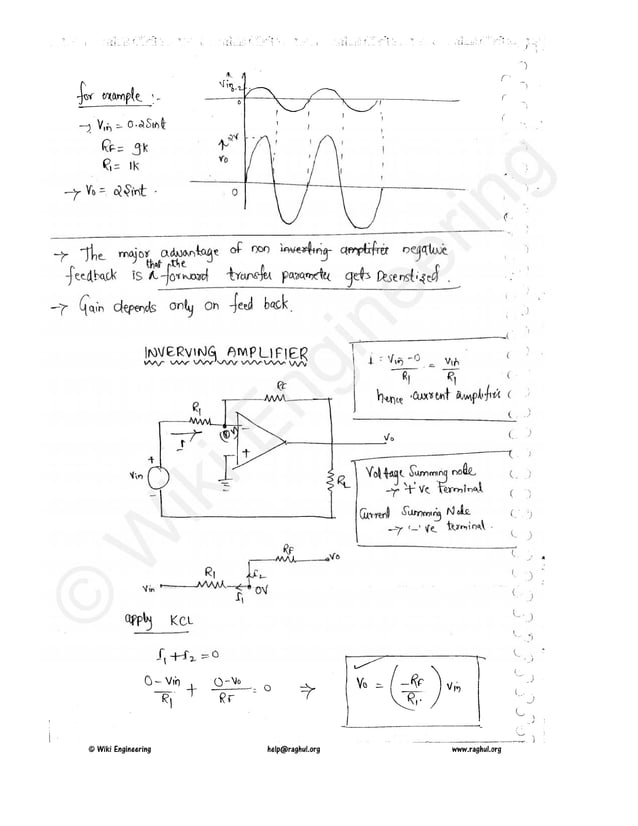 for example :-
→ Vin = 0.2Sint
RF = 9k
R1 = 1k
→ V0 = 2Sint.
Vin
0
2V
V0
0
→ The major advantage of non inverting amplifier negative
feedback is that the forward transfer parameter gets Desenstized.
→ Gain depends only on feed back.
INVERVING AMPLIFIER
I = Vin-0 / R1 = Vin / R1
hence current amplifier
RF
R1
I
0V
-
+
V0
+
Vin
-
RL
Voltage Summing node
→ '+'ve Terminal
Current Summing Node
→ '-'ve terminal.
RF
V0
R1
I2
Vin
I1
0V
apply KCL
I1 + I2 = 0
0-Vin / R1 + 0-V0 / RF = 0 ⇒ V0 = (-RF / R1) Vin
© Wiki Engineering
© Wiki Engineering
help@raghul.org
www.raghul.org